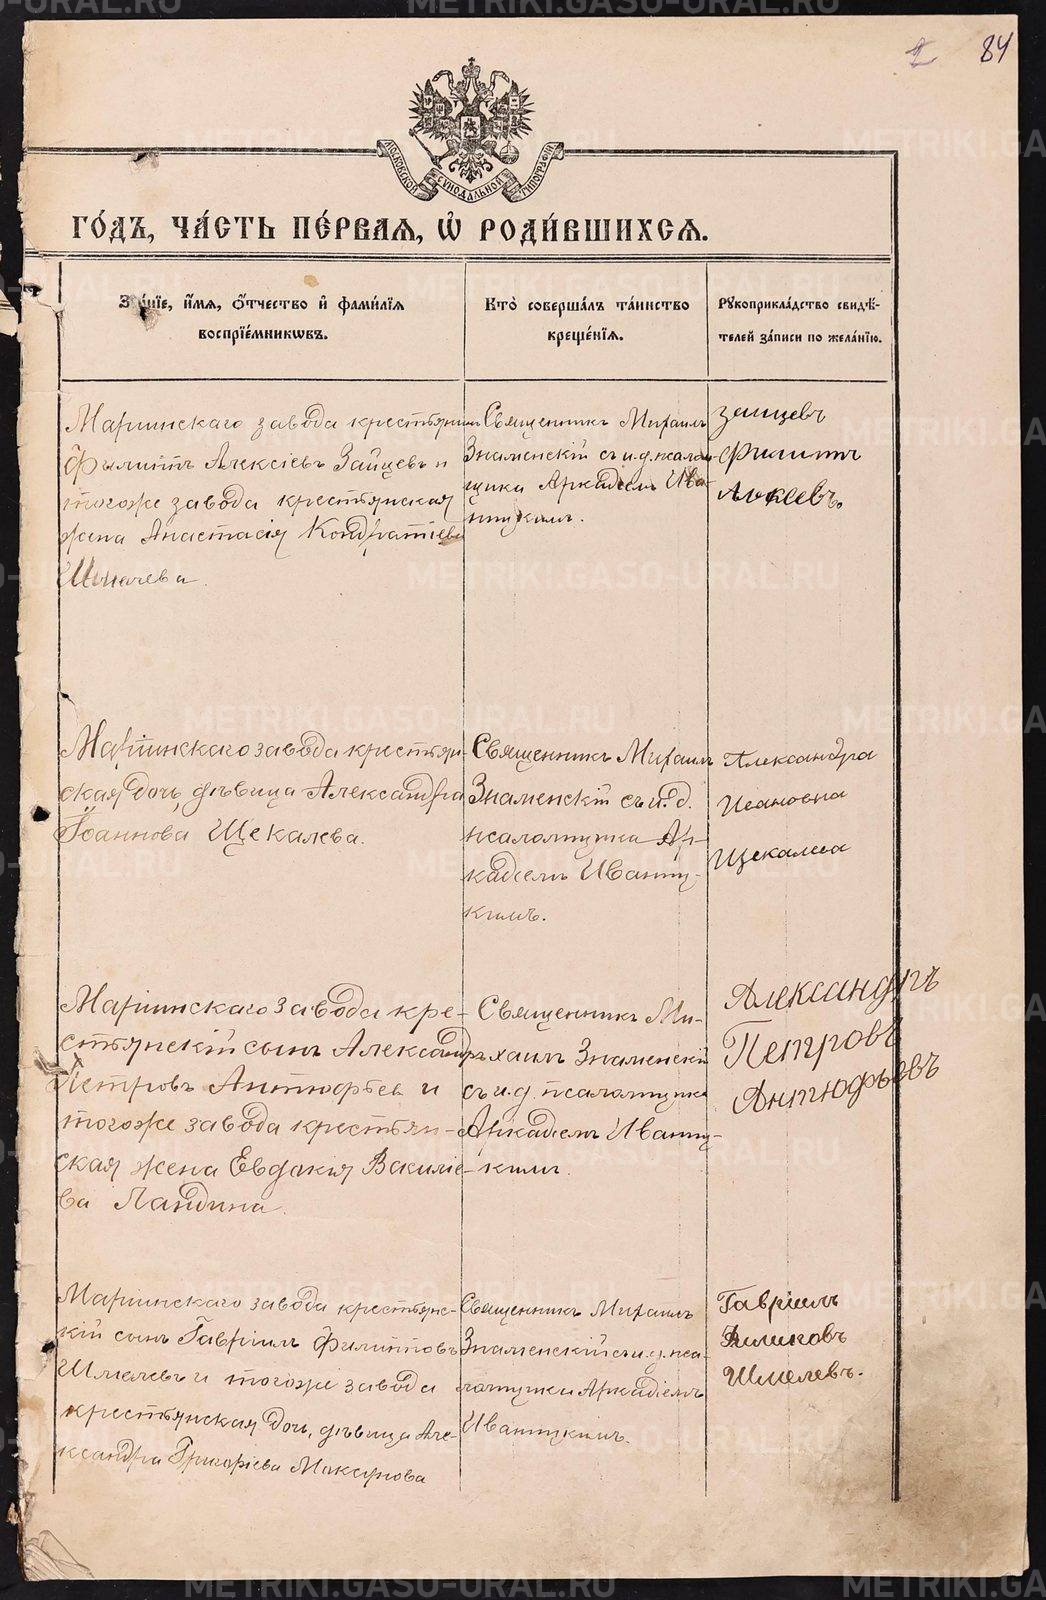 2 84
МОСКОВСКОЙ СѴНОДАЛЬНОЙ ТИПОГРАФІИ
ГО́ДЪ, ЧА́СТЬ ПЕ́РВАЯ, Ѡ҆ РОДИ́ВШИХСЯ.
Зва́ніе, и҆́мѧ, ѻ҆́тчество и҆ фами́лїѧ
воспрїе́мникѡвъ.
Кто̀ соверша́лъ та́инство
креще́нїѧ.
Рꙋкоприкла́дство свидѣ́-
телей за́писи по жела́нїю.
Маріинскаго завода крестьянинъ
Филиппъ Алексіевъ Зайцевъ и
тогоже завода крестьянская
жена Анастасія Кондратіева
Шмелева.
Священникъ Михаилъ
Знаменскій съ и.д. псалом-
щика Аркадіем Ива-
ницкимъ.
Зайцевъ
Филиппъ
Алксевъ.
Маріинскаго завода крестьян-
ская дочь, дѣвица Александра
Іоаннова Щекалева.
Священникъ Михаилъ
Знаменскій съ и.д.
псаломщика Ар-
кадіемъ Иваниц-
кимъ.
Александра
Ивановна
Щекалева
Маріинскаго завода кре-
стьянскій сынъ Александръ
Петровъ Антюфьев и
тогоже завода крестьян-
ская жена Евдокія Василіе-
ва Ландина.
Священникъ Ми-
хаилъ Знаменскій
съ и.д. псаломщика
Аркадіемъ Иваниц-
кимъ.
Александръ
Петровъ
Антюфьевъ
Маріинскаго завода крестьянс-
кій сынъ Гавріилъ Филипповъ
Шмелевъ и тогоже завода
крестьянская дочь, дѣвица Але-
ксандра Григоріева Максунова
Священникъ Михаилъ
Знаменскій съ и.д. пса-
ломщика Аркадіемъ
Иваницкимъ.
Гавріилъ
Филиповъ
Шмелевъ.
METRIKI.GASO-URAL.RU